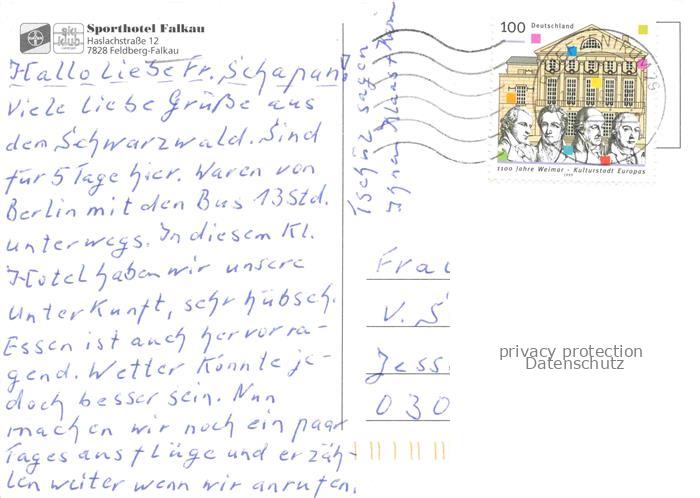 Sporthotel Falkau
Haslachstraße 12
7828 Feldberg-Falkau
ski
klub
Hallo Liebe Fr. Schapan!
Viele liebe Grüße aus
dem Schwarzwald. Sind
für 5 Tage hier. Waren von
Berlin mit den Bus 13 Std.
unterwegs. In diesem Kl.
Hotel haben wir unsere
Unterkunft, sehr hübsch.
Essen ist auch hervorra-
gend. Wetter könnte je-
doch besser sein. Nun
machen wir noch ein paar
Tagesausflüge und erzäh-
len weiter wenn wir anrufen.
Tschüß sagen
100 Deutschland
1100 Jahre Weimar - Kulturstadt Europas
1999
Frau
V. S
Jess
030
privacy protection
Datenschutz